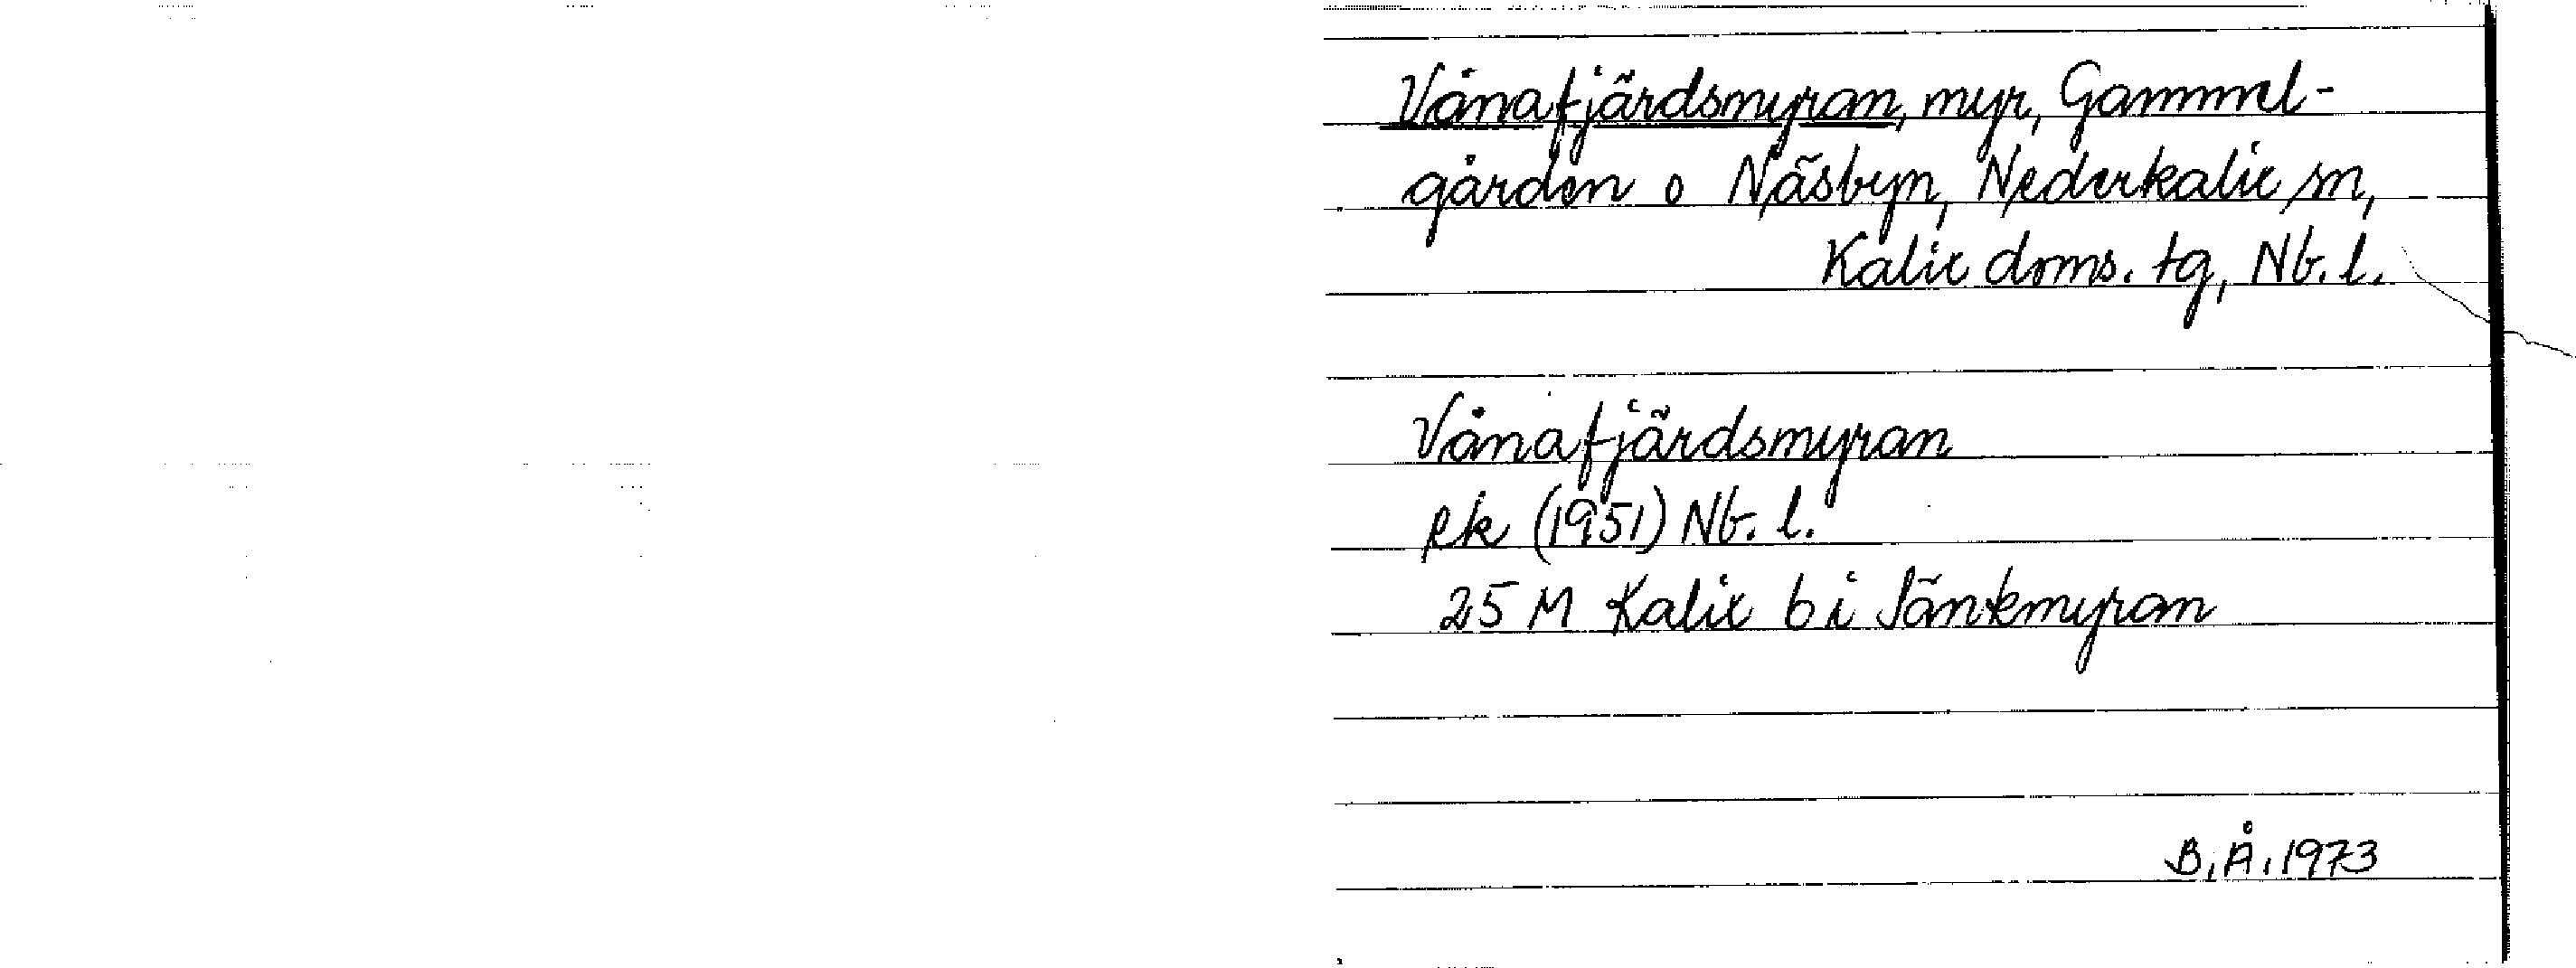 Vånafjärdsmyran, myr, Gammel-
gården o Näsbyn, Nederkalix sn,
Kalix doms. tg, Nb. l.
Vånafjärdsmyran
ek (1951) Nb. l.
25 M Kalix b i Jänkmyran
B.Å. 1973